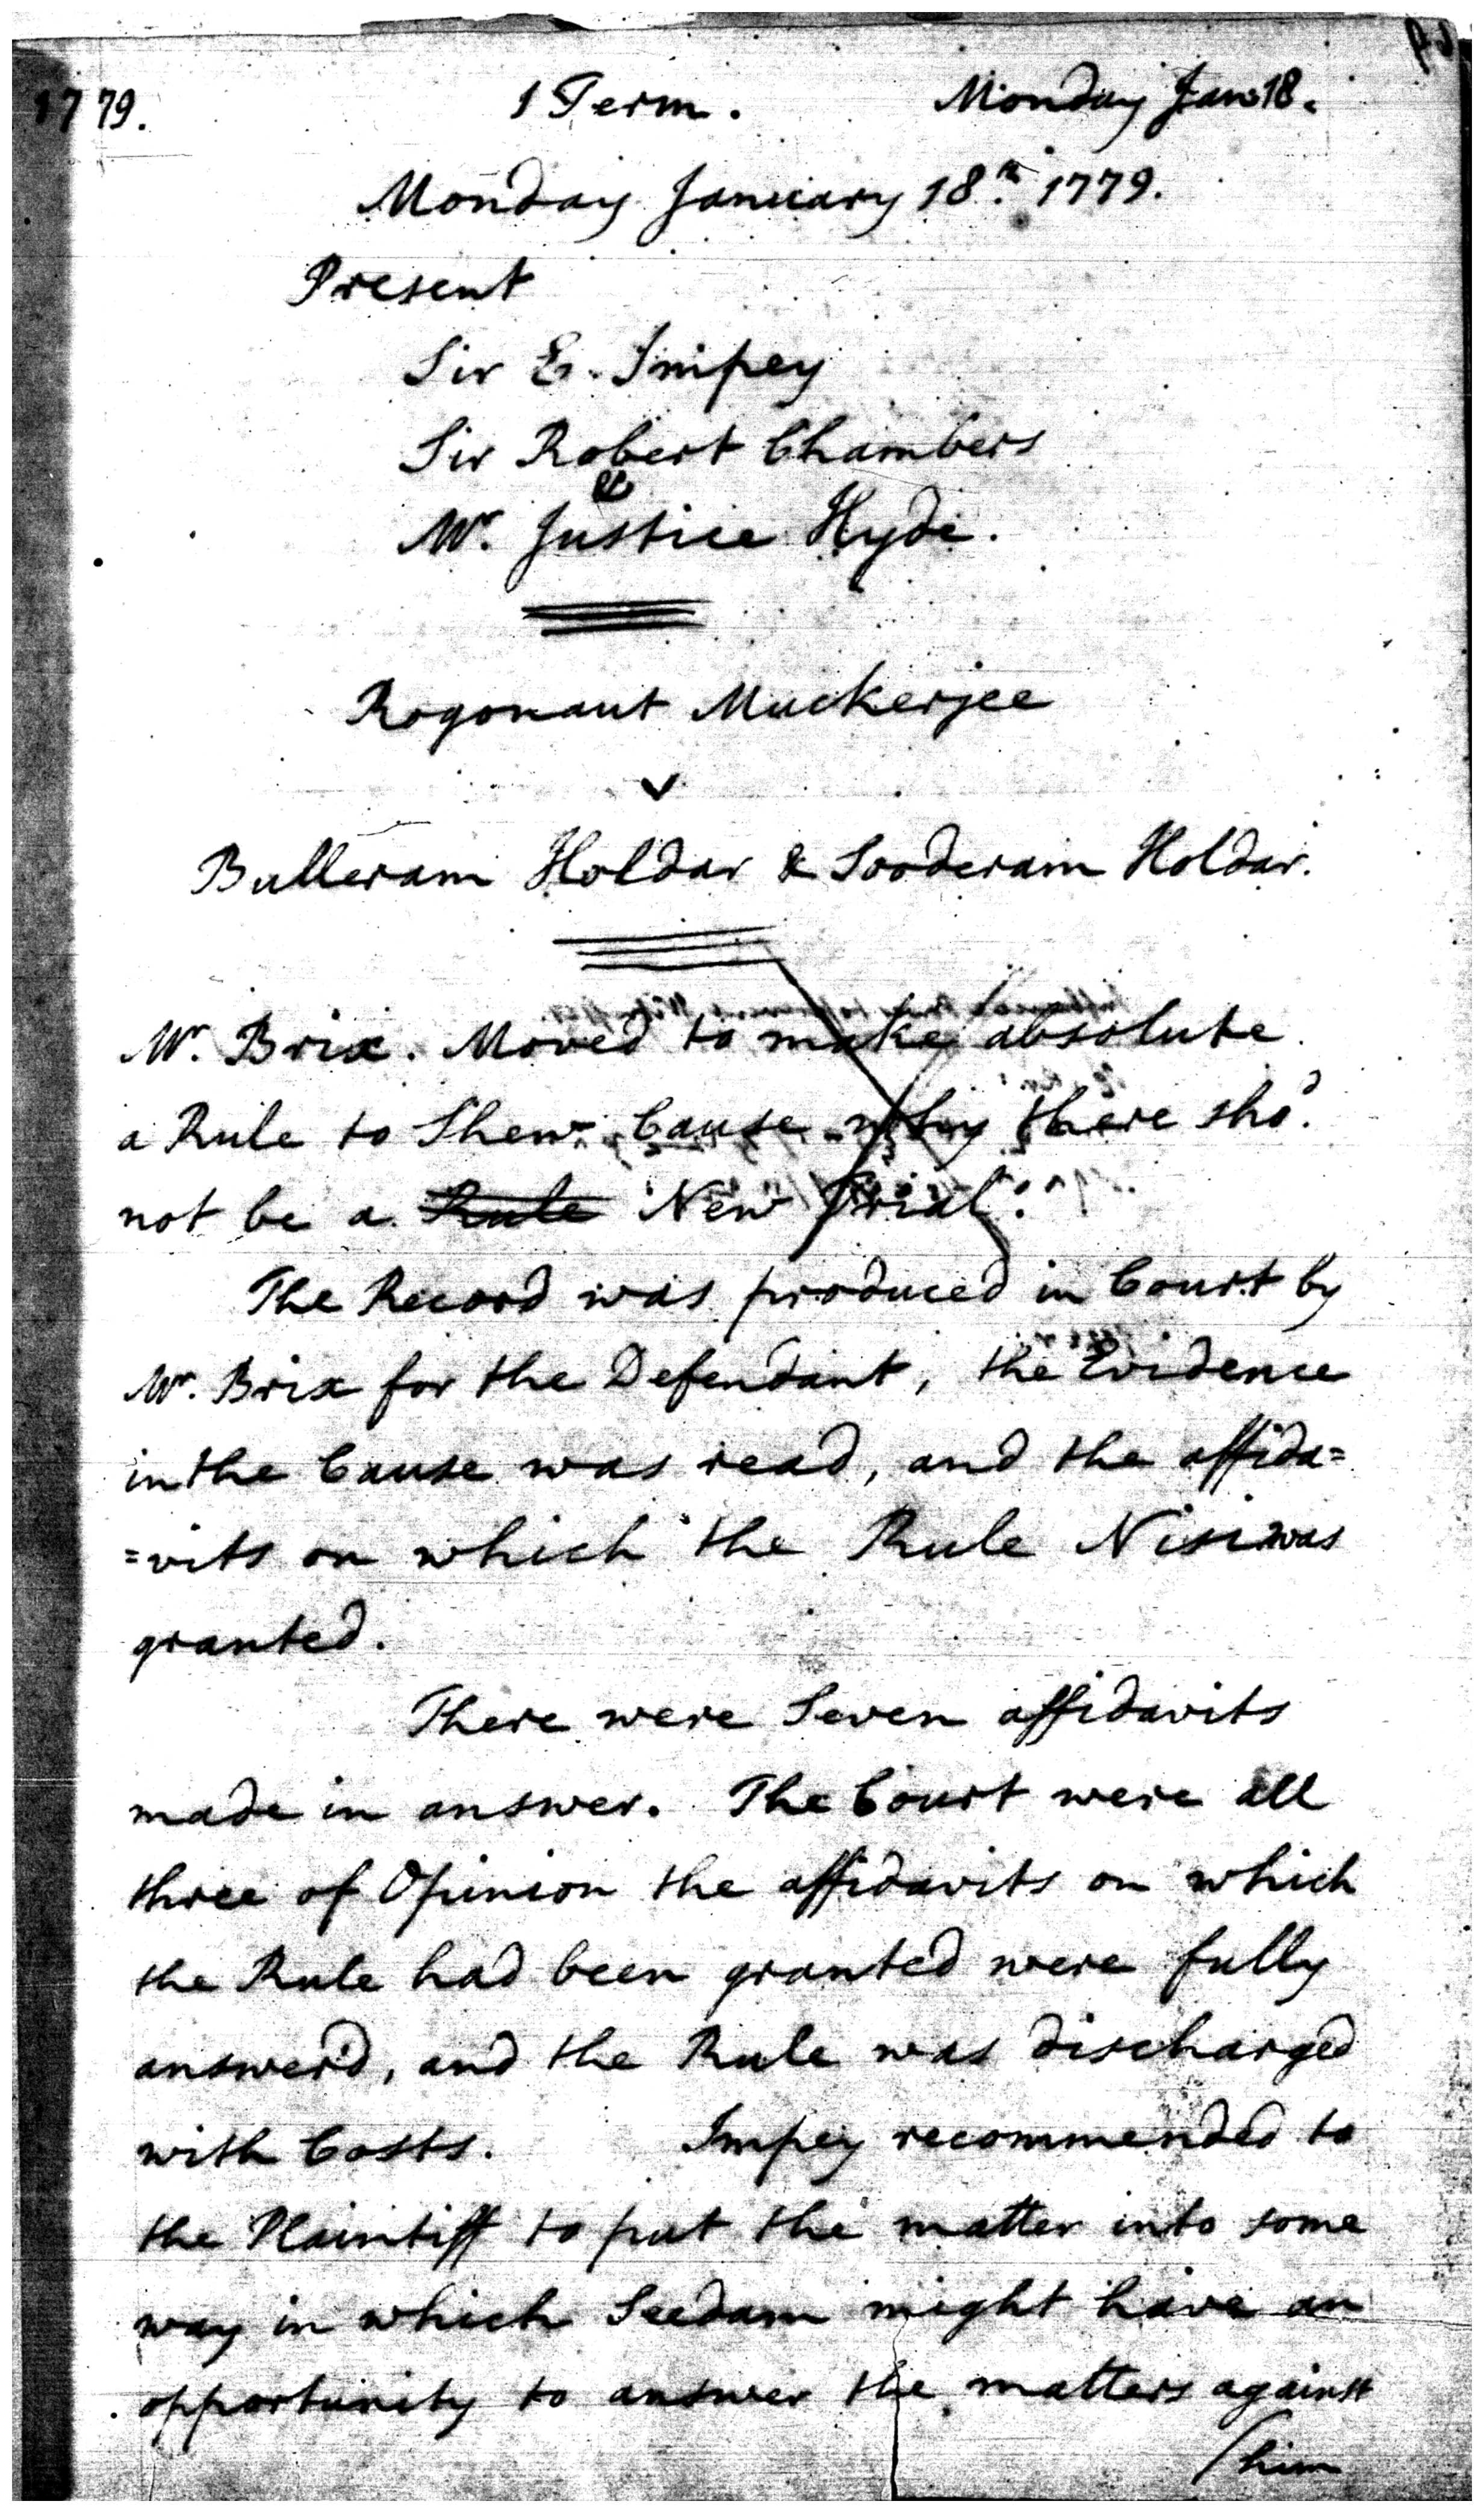 1779. 1 Term. Monday Jan. 18.
Monday January 18th 1779.
Present
Sir E. Impey
Sir Robert Chambers
&
Mr. Justice Hyde.
Rogonaut Muckerjee
v
Bulleram Holdar & Sooderam Holdar.
Mr. Brix. Moved to make absolute
a Rule to Shew Cause why there shod.
not be a Rule New Trial.
The Record was produced in Court by
Mr. Brix for the Defendant, the Evidence
in the Cause was read, and the affida=
=vits on which the Rule Nisi was
granted.
There were Seven affidavits
made in answer. The Court were all
three of Opinion the affidavits on which
the Rule had been granted were fully
answer'd, and the Rule was discharged
with Costs. Impey recommended to
the Plaintiff to put the matter into some
way in which Seedam might have an
opportunity to answer the matters against
/him